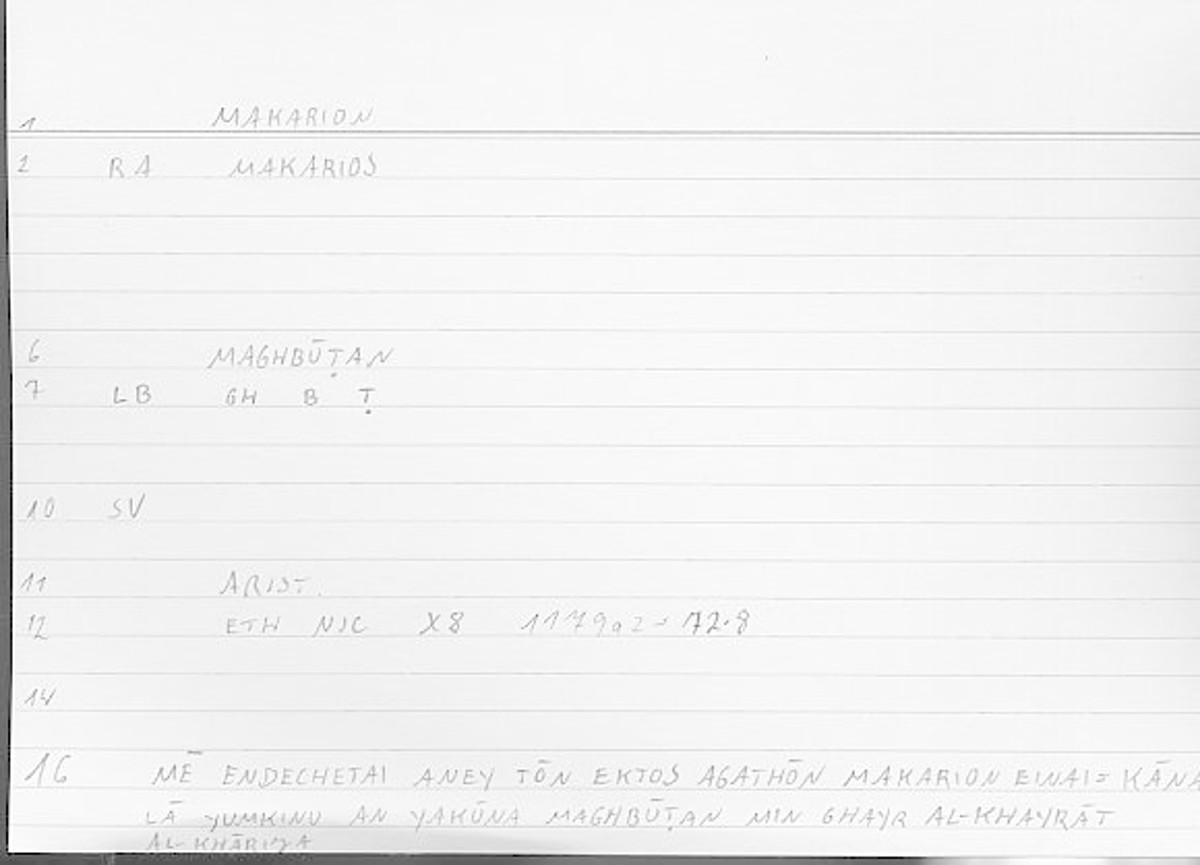 1 MAKARION
2 RA MAKARIOS
6 MAGHBŪṬAN
7 LB GH B Ṭ
10 SV
11 ARIST.
12 ETH NIC X8 1179a2 = 72.8
14
16 MĒ ENDECHETAI ANEY TŌN EKTOS AGATHŌN MAKARION EINAI = KĀNA
LĀ YUMKINU AN YAKŪNA MAGHBŪṬAN MIN GHAYR AL-KHAYRĀT
AL-KHĀRIǦA